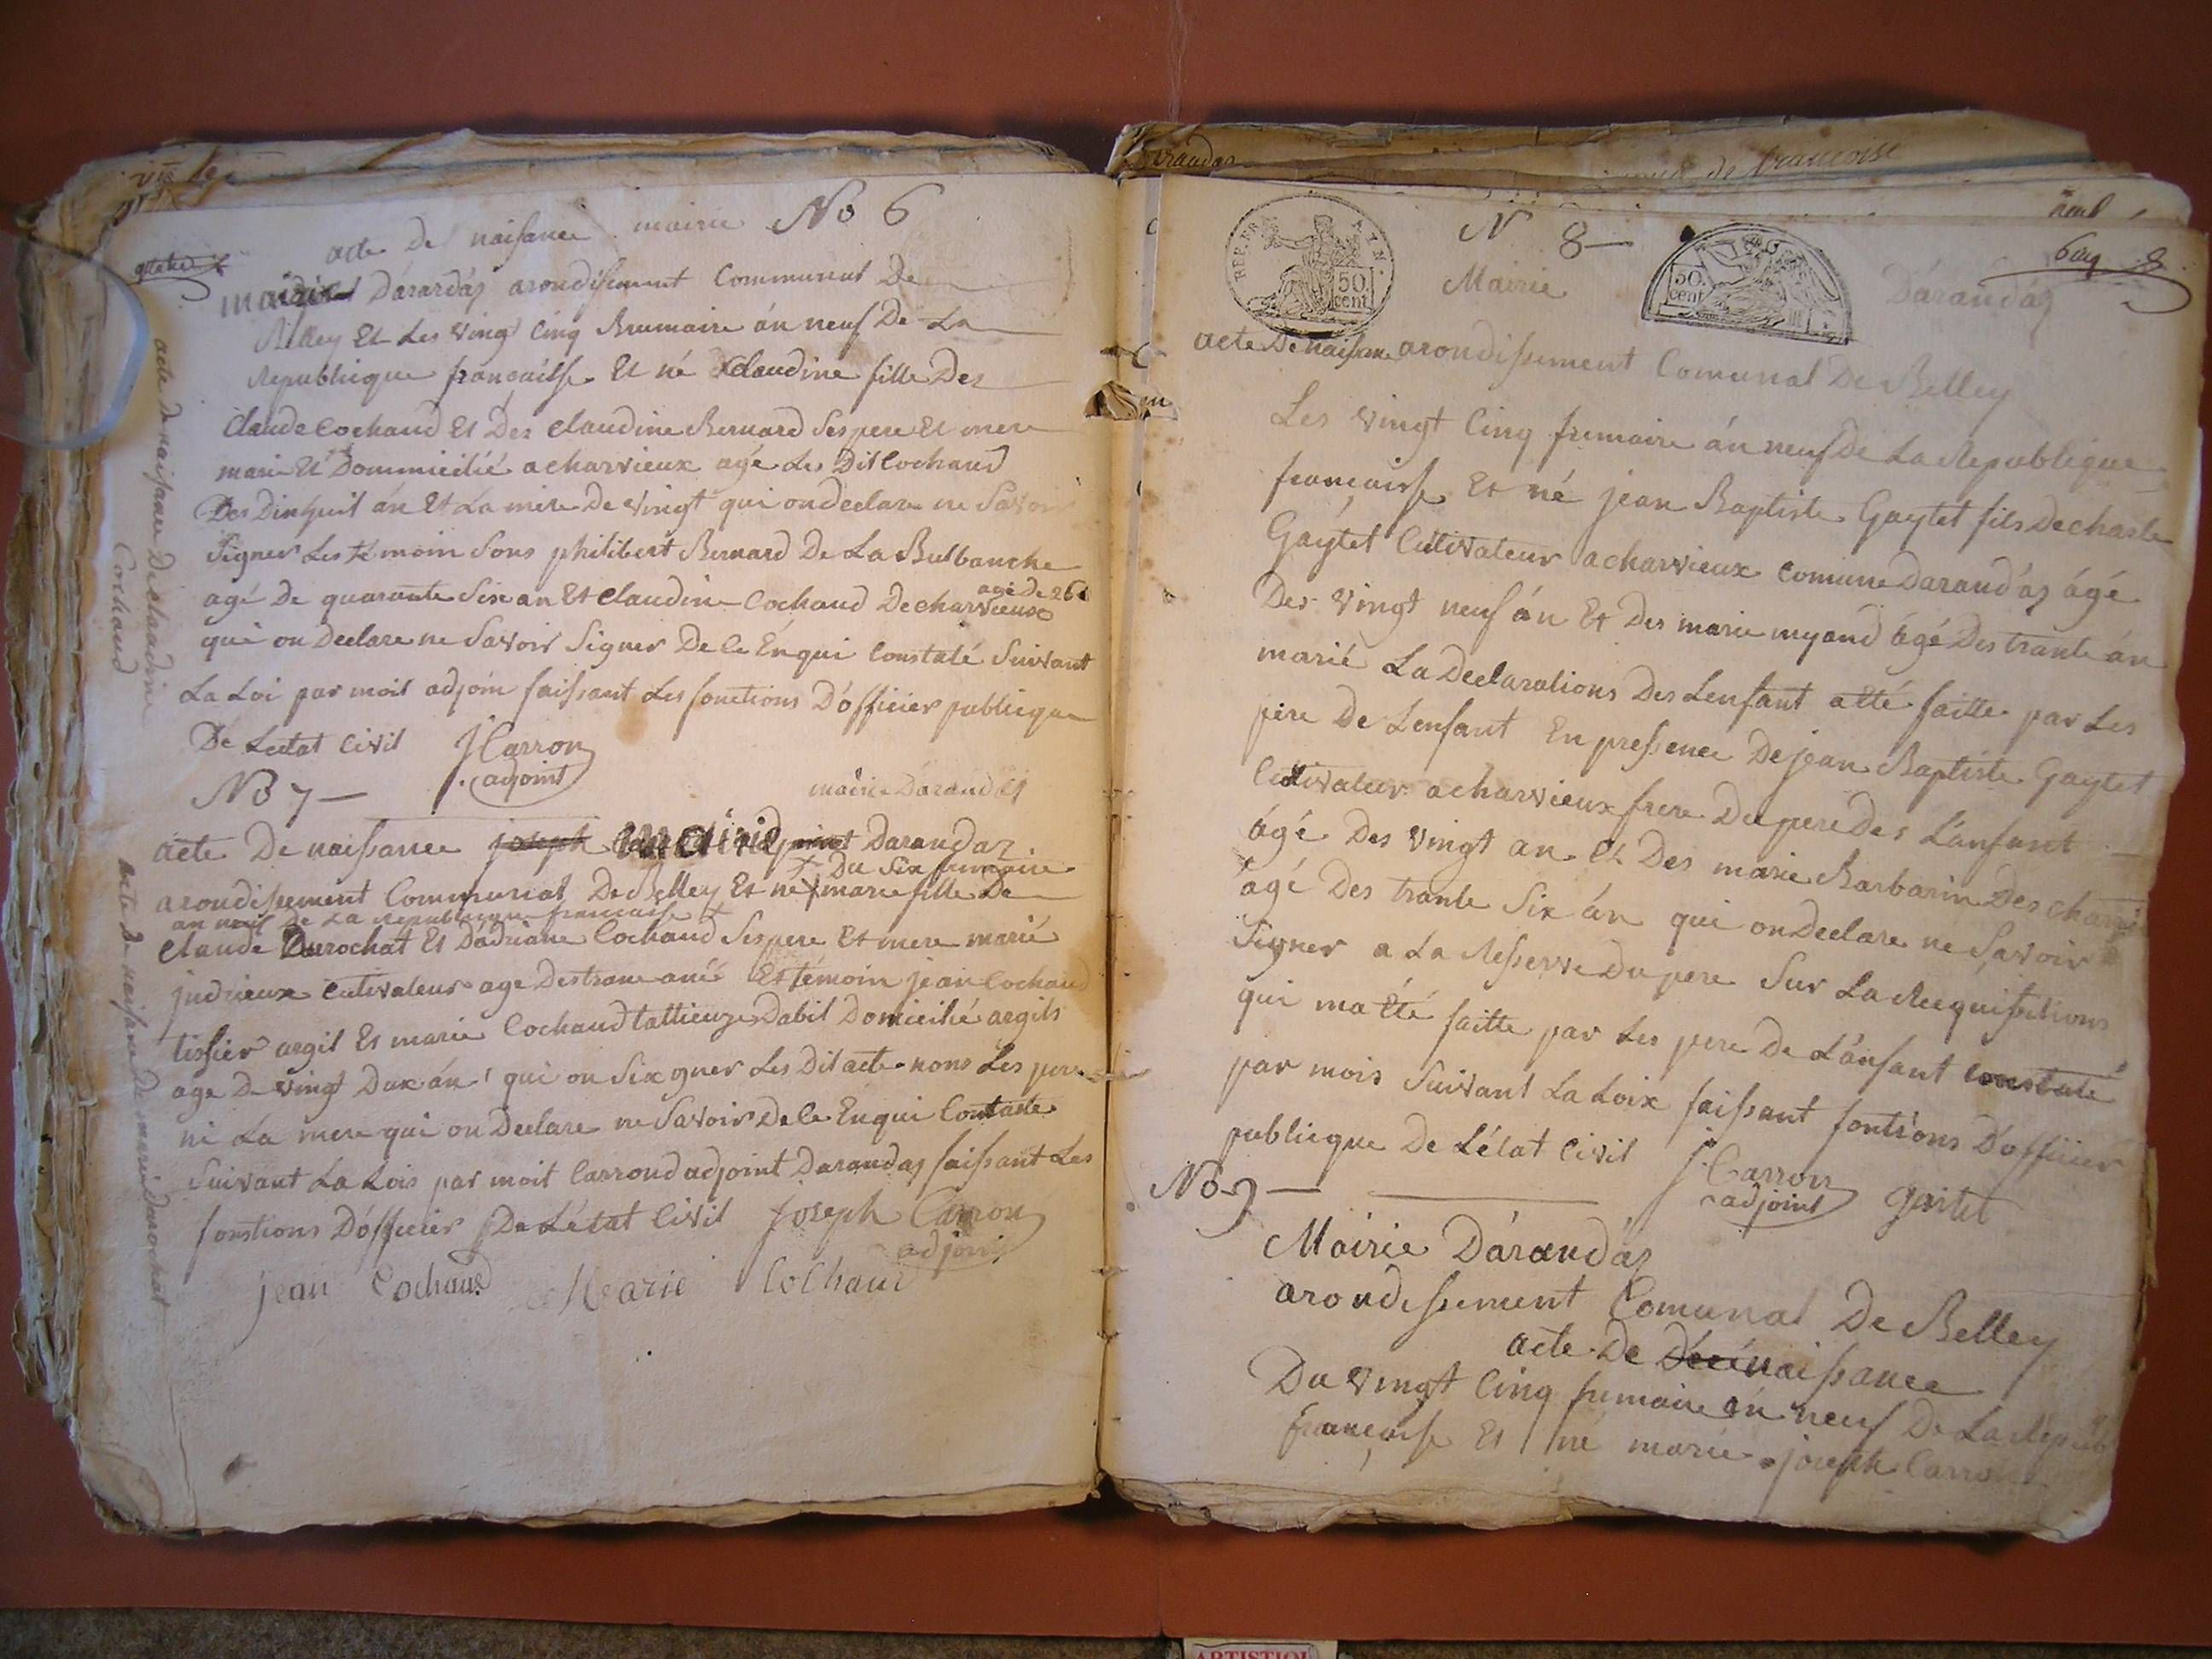 acte De naisance mairie No 6
quatre
mairie Dárardáz arondisement Communal De
Belley Et Les vingt Cinq Brumaire án neuf De La
Republique françaisse Et né Claudine fille Des
Claude Cochaud Et Des Claudine Bernard Ses pere Et mere
marie Et Dommicilié a charvieux agé Les Dit Cochaud
Des Dixhuit án Et La mere De vingt qui on declare ne Savoir
Signer Les témoin Sons philibert Bernard De La Bulbanche
agé De quarante Six an Et Claudine Cochaud De charvieux
agé de 26
qui on Declare ne Savoir Signer De Ce Enqui Constaté Suivant
La Loi par moit adjoin faissant Les fonctions D'officier publicque
De Letat Civil J Carron
adjoint
acte de naisance De claudine
Cochaud
No 7 —
mairie Darandas
acte De naissance joseph mairie Darandaz
+ Du Six frimaire
arondissement Communal De Belley Et né + marie fille De
an neuf De La republique francaise +
Claude Durochat Et Dádriane Cochaud Ses pere Et mere marié
judrieux Cutivaleur age Destrane aneé Et témoin jean Cochaud
tissier argil Et marie Cochaud tallieuze Dabit Domicilié argils
age De vingt Dux án qui on Six gner Les Dit acte nons Les pere
ni La mere qui on Declare ne Savoir De Ce Enqui Contaste
Suivant La Lois par moit Carrond adjoint Darandaz faissant Les
fonstions D'officier De L'état Civil Joseph Carron
adjoint
jean Cochaud Marie Cochaud
acte De naissance De marie Durochat
Darandas
de francoise
neuf
N 8 —
50 cent
50. cent
Mairie Dárandáz
acte De naissance arondissement Comunal De Belley
Les vingt Cinq frimaire án neuf De La Republique
françaisse Et né jean Baptiste Gaytet fils De charle
Gaytet Cultivateur a charvieux comune Darandáz ágé
Des vingt neuf án Et Des marie myand ágé Des trante án
marié La Declarations Des Lenfant a été faitte par Les
pere De Lenfant En pressence De jean Baptiste Gaytet
Cultivateur a charvieux frere Du pere Des L'anfant
ágé Des vingt an Et Des marie Barbarin Des charvi
ágé Des trante Six án qui on Declare ne Savoir
Signer a La Resserve Du pere Sur La Recquisitions
qui ma été faitte par Les pere De L'ánfant Constate
par mois Suivant La Loix faissant fontions D'officier
publicque De L'état Civil J. Carron
adjoint gaitet
No 9 —
Mairie Dárandáz
arondissement Comunal De Belley
acte De Décé naissance
Du vingt Cinq frimaire án neuf De La Répub
francaisse Et né marie joseph Carron